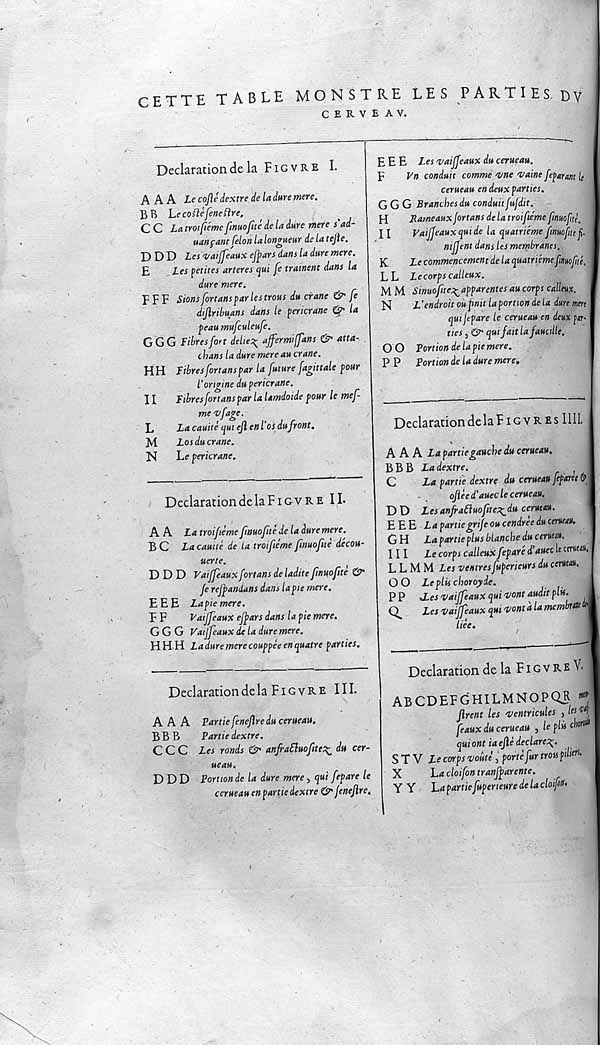 CETTE TABLE MONSTRE LES PARTIES DV
CERVEAV.
Declaration de la FIGVRE I.
A A A Le costé dextre de la dure mere.
B B Le costé senestre.
C C La troisiéme sinuosité de la dure mere s'ad-
uançant selon la longueur de la teste.
D D D Les vaisseaux espars dans la dure mere.
E Les petites arteres qui se trainent dans la
dure mere.
F F F Sions sortans par les trous du crane & se
distribuans dans le pericrane & la
peau musculeuse.
G G G Fibres fort deliez affermissans & atta-
chans la dure mere au crane.
H H Fibres sortans par la suture sagittale pour
l'origine du pericrane.
I I Fibres sortans par la lamdoide pour le mes-
me vsage.
L La cauité qui est en l'os du front.
M Los du crane.
N Le pericrane.
Declaration de la FIGVRE II.
A A La troisiéme sinuosité de la dure mere.
B C La cauité de la troisiéme sinuosité décou-
uerte.
D D D Vaisseaux sortans de ladite sinuosité &
se respandans dans la pie mere.
E E E La pie mere.
F F Vaisseaux espars dans la pie mere.
G G G Vaisseaux de la dure mere.
H H H La dure mere couppée en quatre parties.
Declaration de la FIGVRE III.
A A A Partie senestre du cerueau.
B B B Partie dextre.
C C C Les ronds & anfractuositez du cer-
ueau.
D D D Portion de la dure mere, qui separe le
cerueau en partie dextre & senestre.
E E E Les vaisseaux du cerueau.
F Vn conduit comme vne vaine separant le
cerueau en deux parties.
G G G Branches du conduit susdit.
H Rameaux sortans de la troisiéme sinuosité.
I I Vaisseaux qui de la quatriéme sinuosité fi-
nissent dans les membranes.
K Le commencement de la quatriéme sinuosité.
L L Le corps calleux.
M M Sinuositez apparentes au corps calleux.
N L'endroit où finit la portion de la dure mere
qui separe le cerueau en deux par-
ties, & qui fait la faucille.
O O Portion de la pie mere.
P P Portion de la dure mere.
Declaration de la FIGVRES IIII.
A A A La partie gauche du cerueau.
B B B La dextre.
C La partie dextre du cerueau separée &
ostée d'auec le cerueau.
D D Les anfractuositez du cerueau.
E E E La partie grise ou cendrée du cerueau.
G H La partie plus blanche du cerueau.
I I I Le corps calleux separé d'auec le cerueau.
L L M M Les ventres superieurs du cerueau.
O O Le plis choroyde.
P P Les vaisseaux qui vont audit plis.
Q Les vaisseaux qui vont à la membrane
liée.
Declaration de la FIGVRE V.
A B C D E F G H I L M N O P Q R
strent les ventricules, les
seaux du cerueau, le plis
qui ont ia esté declarez.
S T V Le corps voûté, porté sur trois piliers.
X La cloison transparente.
Y Y La partie superieure de la cloison.